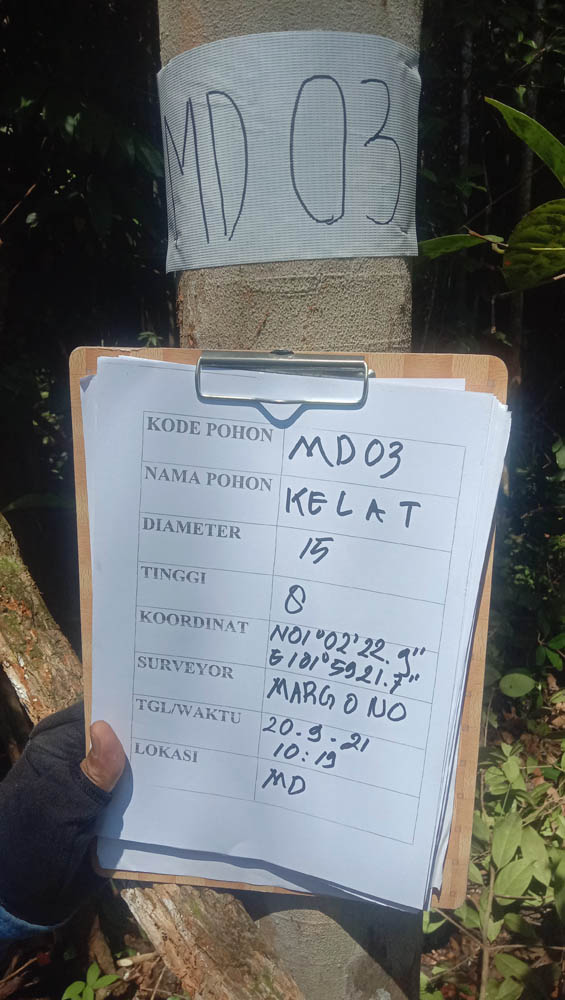 MD 03
KODE POHON MD03
NAMA POHON KELAT
DIAMETER 15
TINGGI 8
KOORDINAT N01°02'22.9"
E101°59'21.7"
SURVEYOR MARGONO
TGL/WAKTU 20.9.21
10:19
LOKASI MD